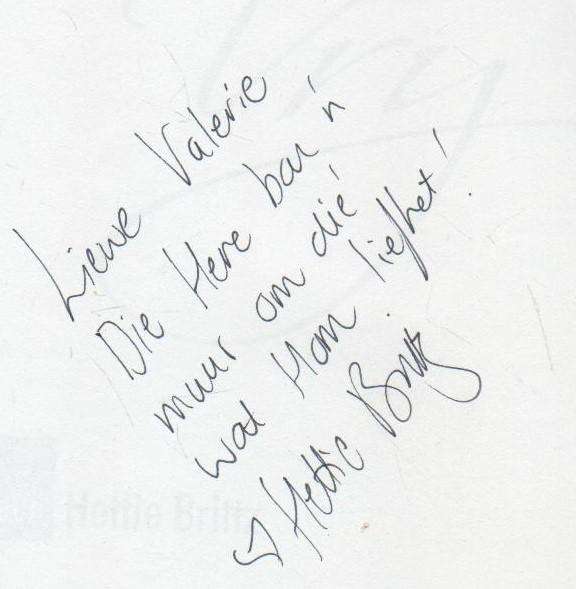 Liewe Valerie
Die Here bou 'n
muur om dié
wat Hom liefhet!
♡ Hettie Britz
Hettie Britz